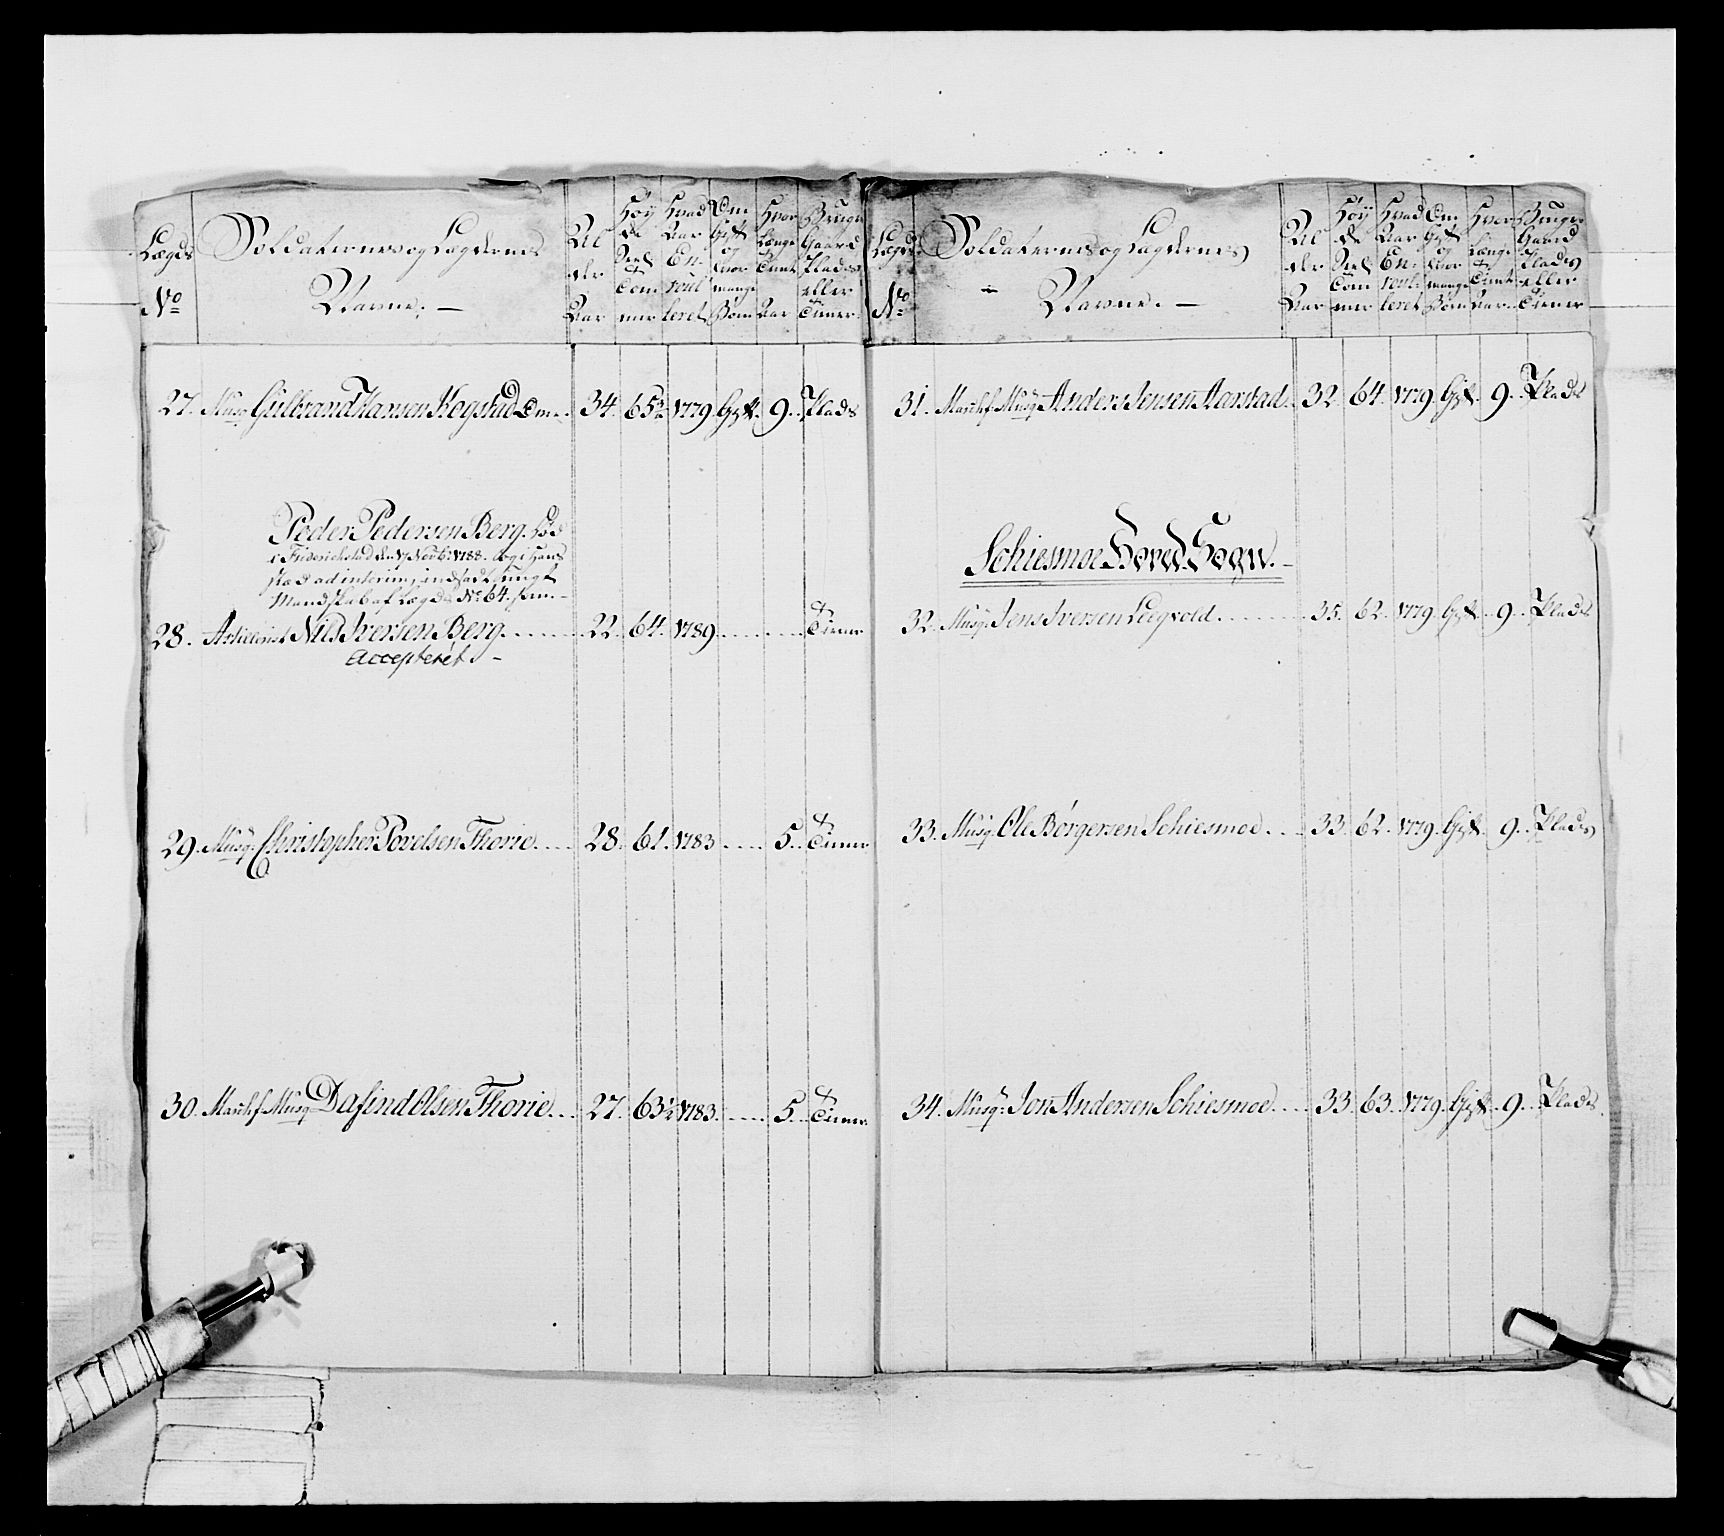 Lægds
No
Soldaternes og Lægdernes
Navne. —
Al
der
Aar
Høy
de
Deel
Tom
mer
Hvad
Aar
En-
roul
leret
Om
Gift
og
hvor
mange
Børn
Hvor
Længe
Tient
Aar
Bruger
Gaard
Plads
eller
Tiener
27. Musq. Gulbrand Hansen Kogstad Om. 34. 65½ 1779 Gift. 9. Plads
Peder Pedersen Berg. fød
i Friderichstad den 17 Novbr. 1788. og i Hans
stæd ad interim, indsadt ungt
Mandskab af Lægds No. 64.
28. Artilerist Nils Iversen Berg. 22. 64. 1789 Tiener
Accepteret. —
29. Musq. Christopher Povelsen Thorie. 28. 61. 1783 5. Tiener
30. Musq. Dafind Olsen Thorie. 27. 63½ 1783. 5. Tiener
Lægds
No
Soldaternes og Lægdernes
Navne. —
Al
der
Aar
Høy
de
Deel
Tom
mer
Hvad
Aar
En-
roul-
leret
Om
Gift
og
hvor
mange
Børn
Hvor
Længe
Tient
Aar
Bruger
Gaard
Plads
eller
Tiener
31. Musq. Anders Jensen Aarstad. 32. 64. 1779 Gift. 9. Plads
Schiesmoe Hoved Sogn. —
32. Musq. Jens Iversen Leegvold. 35. 62. 1779. Gift. 9. Plads
33. Musq. Ole Børgersen Schiesmoe. 33. 62. 1779. Gift. 9. Plads
34. Musq. Jon Andersen Schiesmoe. 33. 63. 1779. Gift. 9. Plads.